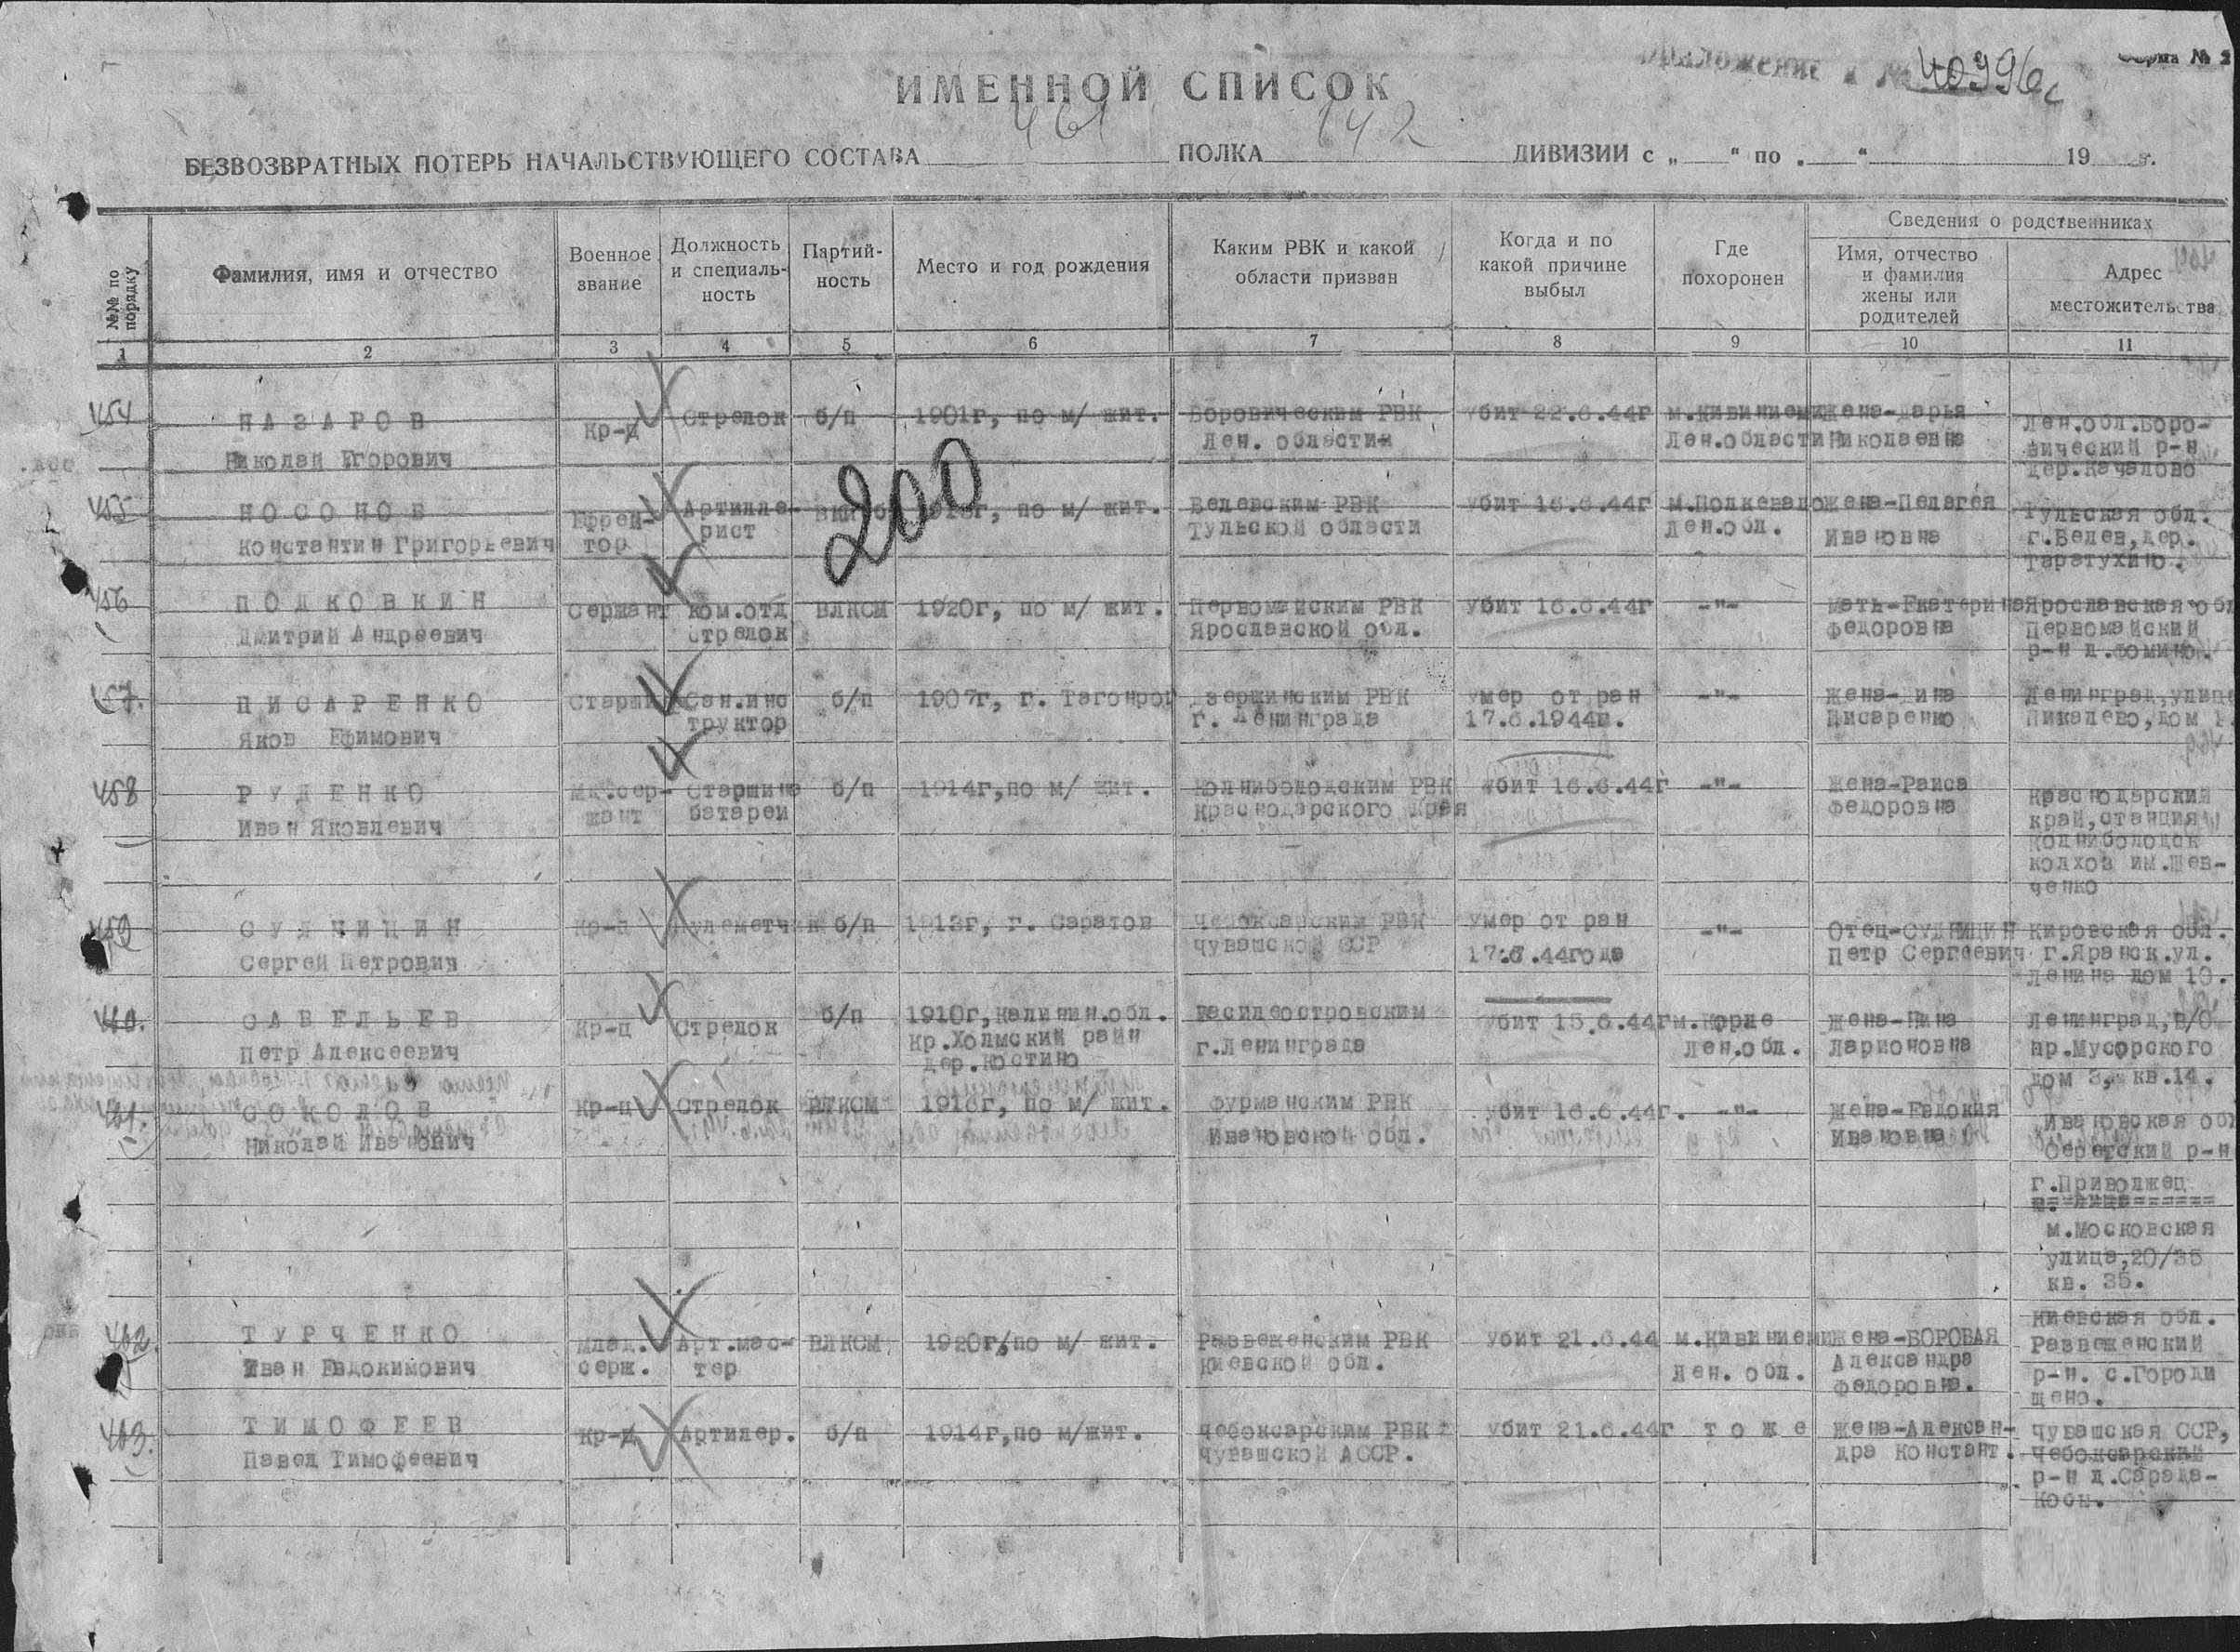 Приложение к № 40996с
Форма № 2
ИМЕННОЙ СПИСОК
БЕЗВОЗВРАТНЫХ ПОТЕРЬ НАЧАЛЬСТВУЮЩЕГО СОСТАВА 461 ПОЛКА 142 ДИВИЗИИ с „ “ по „ “ 19 г.
№№ по порядку
Фамилия, имя и отчество
Военное звание
Должность и специальность
Партийность
Место и год рождения
Каким РВК и какой области призван
Когда и по какой причине выбыл
Где похоронен
Сведения о родственниках
Имя, отчество и фамилия жены или родителей
Адрес местожительства
1 2 3 4 5 6 7 8 9 10 11
200
454 НАЗАРОВ Кр-ц Стрелок б/п 1901г, по м/ жит. Боровическим РВК убит 22.6.44г м.Кивиниеми Жена-Дарья Лен.обл.Боро-
Николай Егорович Лен. области Лен.области Николаевна вический р-н
дер.Качалово
455 НОСОНОВ Ефрей- Артилле- по м/ жит. Белевским РВК убит 16.6.44г Жена-Пелагея Тульская обл.
Константин Григорьевич тор рист Тульской области Лен.обл. Ивановна г.Белев,дер.
Таратухино.
456 ПОДКОВКИН Сержант Ком.отд ВЛКСМ 1920г, по м/ жит. Первомайским РВК убит 16.6.44г -"- Мать-Екатерина Ярославская обл
Дмитрий Андреевич стрелок Ярославской обл. Федоровна Первомайский
р-н д.Фомино.
457. ПИСАРЕНКО Сан.инс б/п 1907г, г. Тагонрог Дзержинским РВК умер от ран -"- Ленинград,улица
Яков Ефимович труктор г. Ленинграда 17.6.1944г. Писаренко Пикалево,дом
458 РУДЕНКО Мл.сер- Старшина б/п 1914г,по м/ жит. Колниболодским РВК убит 16.6.44г -"- Жена-Раиса Краснодарский
Иван Яковлевич жант батареи Краснодарского края Федоровна край,станция
Колниболодск
колхоз им.Шев-
ченко
459 СУДНИЦИН Кр-ц Пулеметчик б/п 1913г, г. Саратов Чебоксарским РВК умер от ран -"- Отец-СУДНИЦИН Кировская обл.
Сергей Петрович Чувашской ССР 17.6.44года Петр Сергеевич г.Яранск.ул.
Ленина дом 10.
460. САВЕЛЬЕВ Кр-ц Стрелок б/п 1910г,калинин.обл. Василеостровским убит 15.6.44г Жена-Нина Ленинград,В/О
Петр Алексеевич Кр.Холмский райн г.Ленинграда Лен.обл. Ларионовна пр.Мусорского
дер.Костино дом 3, кв.14.
461. СОКОЛОВ Кр-ц Стрелок ВЛКСМ 1918г, по м/ жит. Фурманским РВК убит 16.6.44г. -"- Жена-Евдокия Ивановская обл
Николай Иванович Ивановской обл. Ивановна Серетский р-н
г.Приволжец
м.Московская
улица,20/35
кв. 35.
462. ТУРЧЕНКО Млад. Арт.мас- ВЛКСМ 1920г,по м/ жит. Развеженским РВК убит 21.6.44 м.Кивиниеми Жена-БОРОВАЯ Киевская обл.
Иван Евдокимович серж. тер Киевской обл. Лен. обл. Александра Развеженский
Федоровна. р-н. с.Городи
щено.
463. ТИМОФЕЕВ Кр-ц Артилер. б/п 1914г,по м/жит. Чебоксарским РВК убит 21.6.44г тоже Жена-Алексан- Чувашская ССР,
Павел Тимофеевич Чувашской АССР. дра Констант. Чебоксарский
р-н д.Сарада-
Косы.